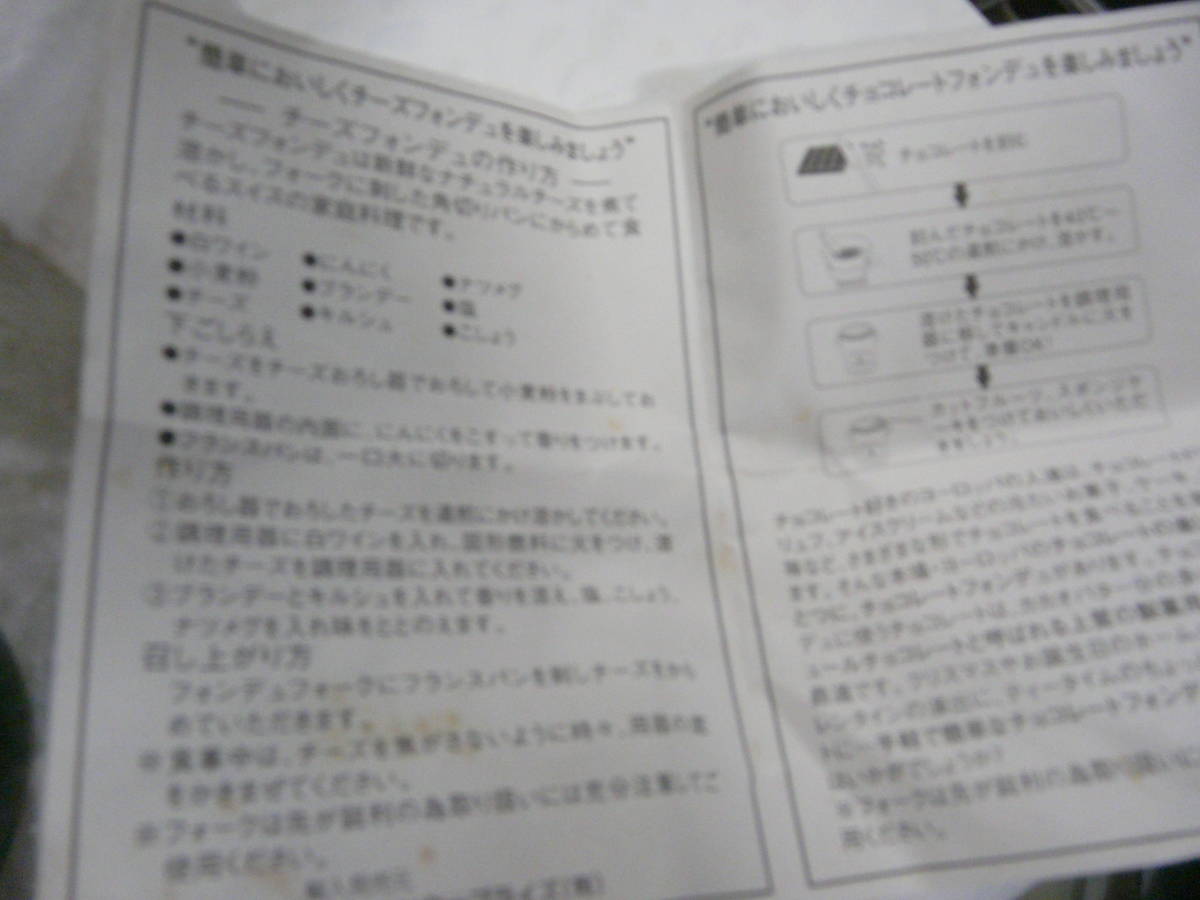 "簡単においしくチーズフォンデュを楽しみましょう"
チーズフォンデュの作り方
チーズフォンデュは新鮮なナチュラルチーズを煮て
溶かし、フォークに刺した角切りパンにからめて食
べるスイスの家庭料理です。
材料
●白ワイン ●にんにく ●ナツメグ
●小麦粉 ●ブランデー ●塩
●チーズ ●キルシュ ●こしょう
下ごしらえ
●チーズをチーズおろし器でおろして小麦粉をまぶしてお
きます。
●調理用器の内面に、にんにくをこすって香りをつけます。
●フランスパンは、一口大に切ります。
作り方
①おろし器でおろしたチーズを湯煎にかけ溶かしてください。
②調理用器に白ワインを入れ、固形燃料に火をつけ、溶
けたチーズを調理用器に入れてください。
③ブランデーとキルシュを入れて香りを添え、塩、こしょう、
ナツメグを入れ味をととのえます。
召し上がり方
フォンデュフォークにフランスパンを刺しチーズをから
めていただきます。
※食事中は、チーズを焦がさないように時々、用器の底
をかきまぜてください。
※フォークは先が鋭利の為取り扱いには充分注意してご
使用ください。
"簡単においしくチョコレートフォンデュを楽しみましょう"
チョコレートを刻む
刻んだチョコレートを40℃〜
50℃の湯煎にかけ、溶かす。
溶けたチョコレートを調理用
器に移してキャンドルに火を
つけて、準備OK!
カットフルーツ、スポンジケ
ーキをつけておいしくいただ
きましょう。
チョコレート好きのヨーロッパの人達は、チョコレートや
リュフ、アイスクリームなどの冷たいお菓子、ケーキ、
等など、さまざまな形でチョコレートを食べることを
ます。そんな本場・ヨーロッパのチョコレートの
とつに、チョコレートフォンデュがあります。チョコ
デュに使うチョコレートは、カカオバター分の
ュールチョコレートと呼ばれる上質の製菓用
最適です。クリスマスやお誕生日のホーム
レンタインの演出に、ティータイムのちょっ
トに…手軽で簡単なチョコレートフォンデ
はいかがでしょうか?
※フォークは先が鋭利の為取り扱いに
用ください。